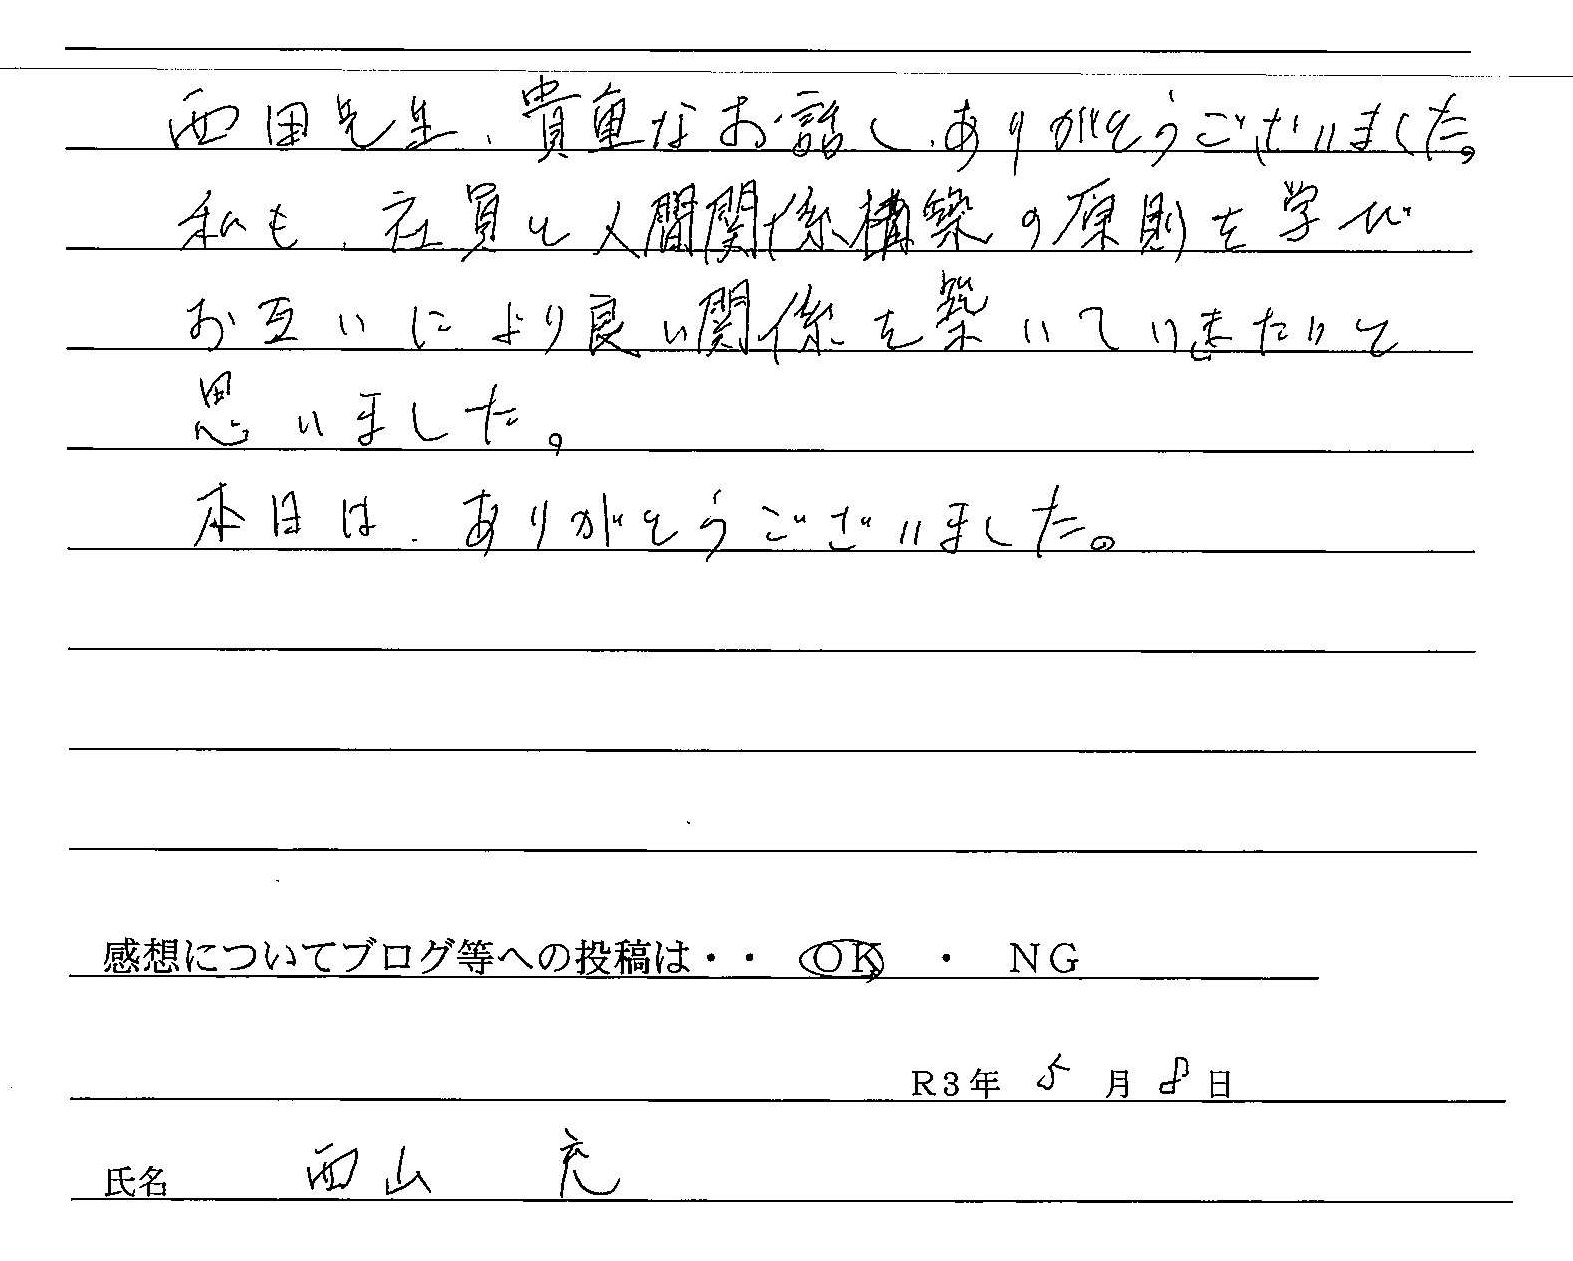 西田先生、貴重なお話し、ありがとうございました。
私も、社員と人間関係構築の原則を学び
お互いにより良い関係を築いていきたいと
思いました。
本日は、ありがとうございました。
感想についてブログ等への投稿は・・ OK ・ NG
R3年 5月8日
氏名 西山 充